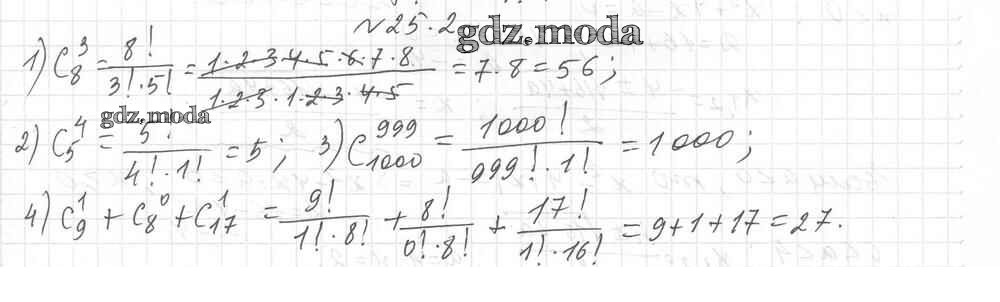 №25.2 gdz.moda
1) C₈³ = 8! / (3!·5!) = (1·2·3·4·5·6·7·8) / (1·2·3·1·2·3·4·5) = 7·8 = 56;
gdz.moda
2) C₅⁴ = 5! / (4!·1!) = 5; 3) C₁₀₀₀⁹⁹⁹ = 1000! / (999!·1!) = 1000;
4) C₉¹ + C₈⁰ + C₁₇¹ = 9! / (1!·8!) + 8! / (0!·8!) + 17! / (1!·16!) = 9+1+17 = 27.